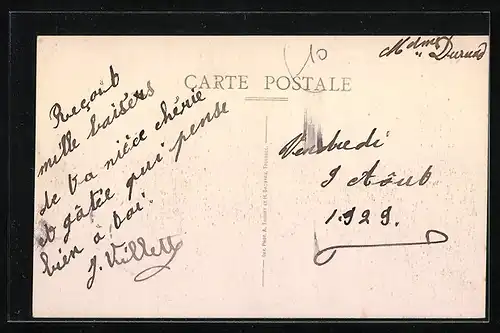 CARTE POSTALE
10
Mdme
" Durand
Reçoit
mille baisers
de ta nièce chérie
et gâtée qui pense
bien à toi.
J. Villette
Vendredi
9 Août
1929.